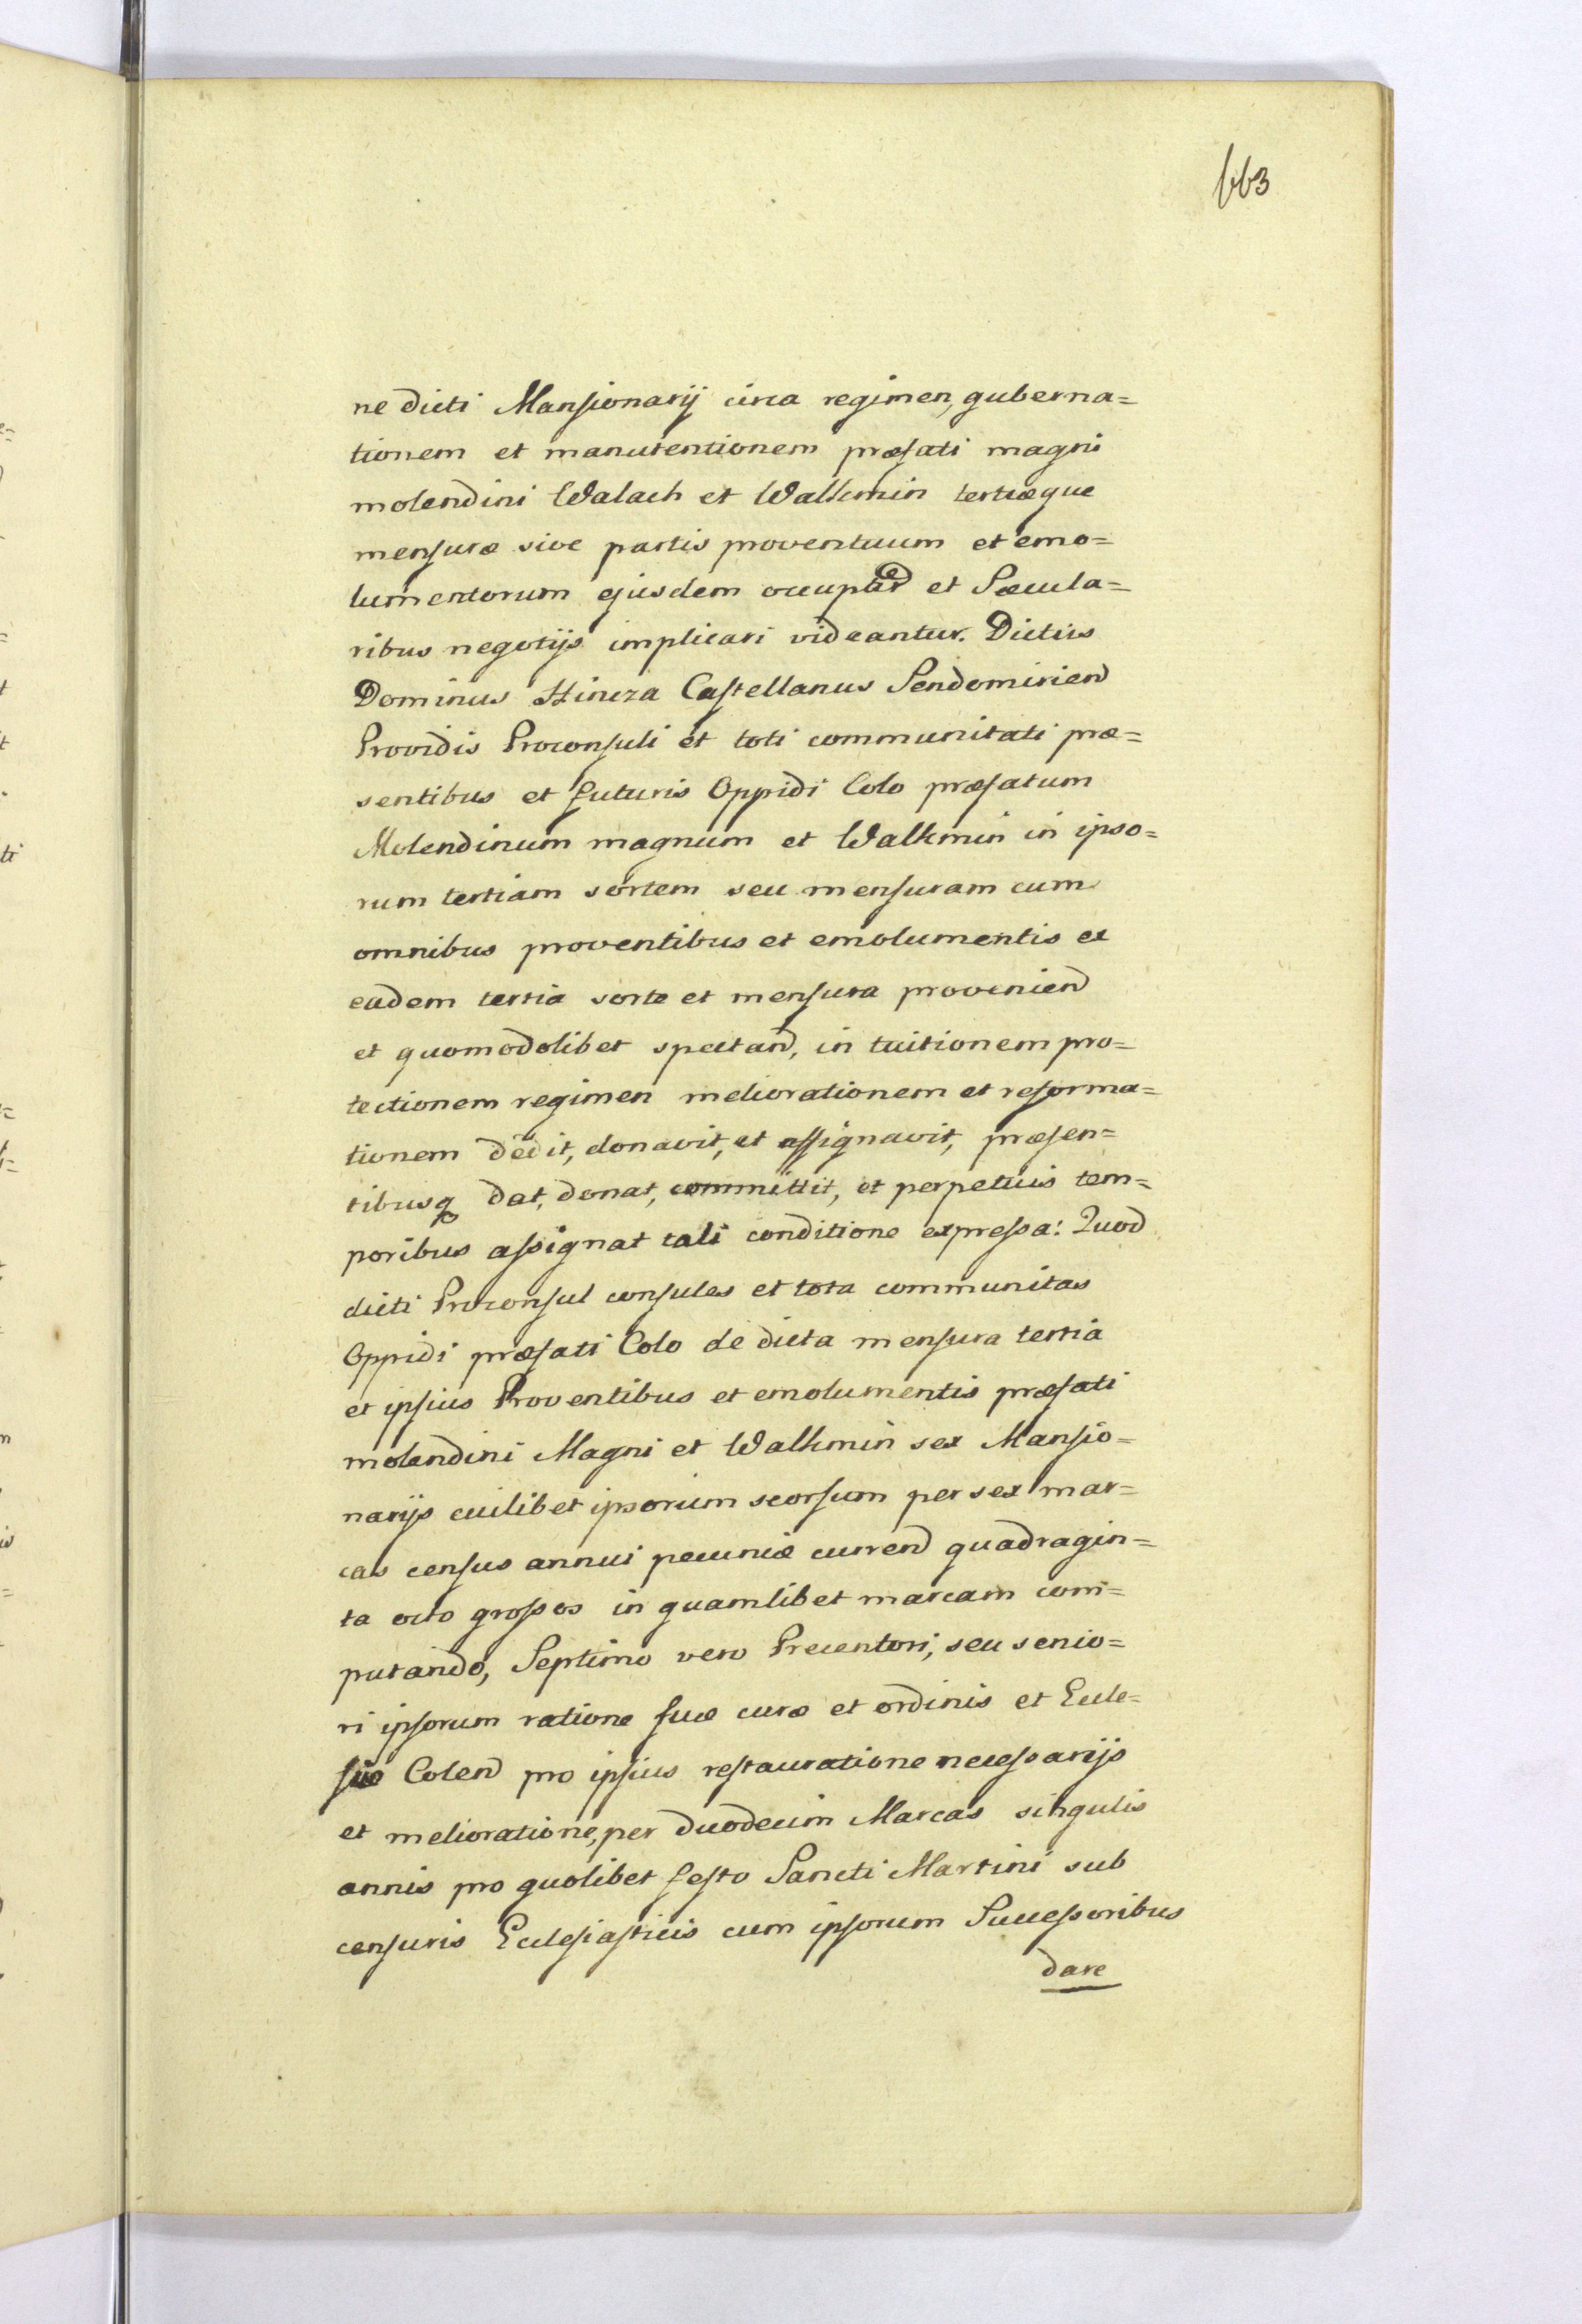 663
ne dicti Mansionarij circa regimen, guberna=
tionem et manutentionem præfati magni
molendini Walach et Walkmin tertiæque
mensuræ sive partis proventuum et emo=
lumentorum ejusdem et Sæcula=
ribus negotijs implicari videantur. Dictus
Dominus Hincza Castellanus Sendomirien
Providis Proconsuli et toti communitati præ=
sentibus et futuris Oppidi Colo præfatum
Molendinum magnum et Walkmin in ipso=
rum tertiam sortem seu mensuram cum
omnibus proventibus et emolumentis ex
eadem tertia sorte et mensura provenien
et quomodolibet spectan, in tuitionem pro=
tectionem regimen meliorationem et reforma=
tionem dedit, donavit, et assignavit, præsen=
tibusq dat, donat, committit, et perpetuis tem=
poribus assignat tali conditione expressa: Quod
dicti Proconsul consules et tota communitas
Oppidi præfati Colo de dicta mensura tertia
et ipsius Proventibus et emolumentis præfati
molendini Magni et Walkmin sex Mansio=
narijs cuilibet ipsorum seorsum per sex mar=
cas census annui pecuniæ curren quadragin=
ta octo grossos in quamlibet marcam com=
putando, Septimo vero Precentori, seu senio=
ri ipsorum ratione suæ curæ et ordinis et Eccle=
siæ Colen pro ipsius restauratione necessarijs
et melioratione, per duodecim Marcas singulis
annis pro quolibet festo Sancti Martini sub
censuris Ecclesiasticis cum ipsorum Successoribus
dare